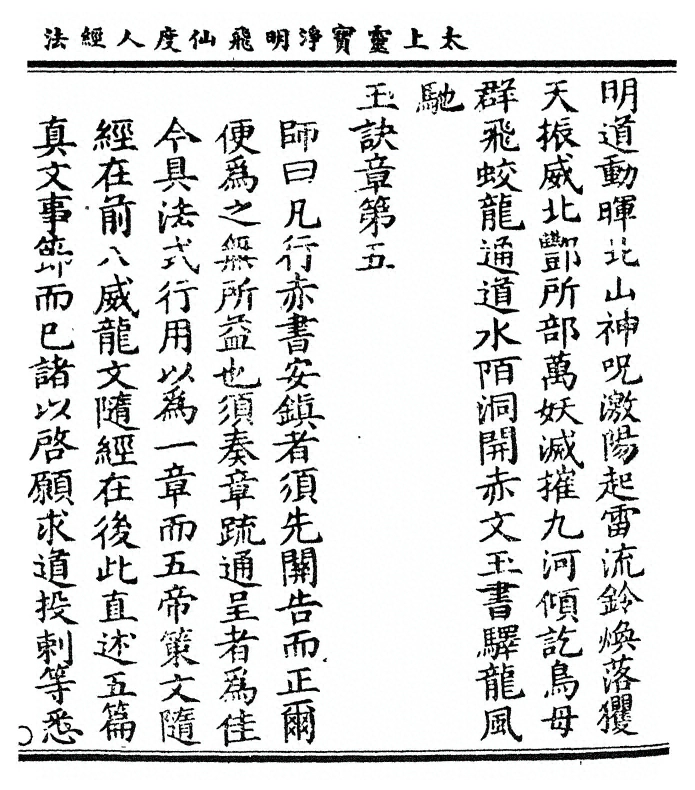 太上靈寶淨明飛仙度人經法
明道動暉北山神呪激陽起雷流鈴煥落玃
天振威北酆所部萬妖滅摧九河傾訖鳥母
群飛蛟龍通道水陌洞開赤文玉書驛龍風
馳
玉訣章第五
師曰凡行赤書安鎮者須先關告而正爾
便爲之無所益也須奏章疏通呈者爲佳
今具法式行用以爲一章而五帝策文隨
經在前八威龍文隨經在後此直述五篇
真文事節而已諸以啓願求道投刺等悉